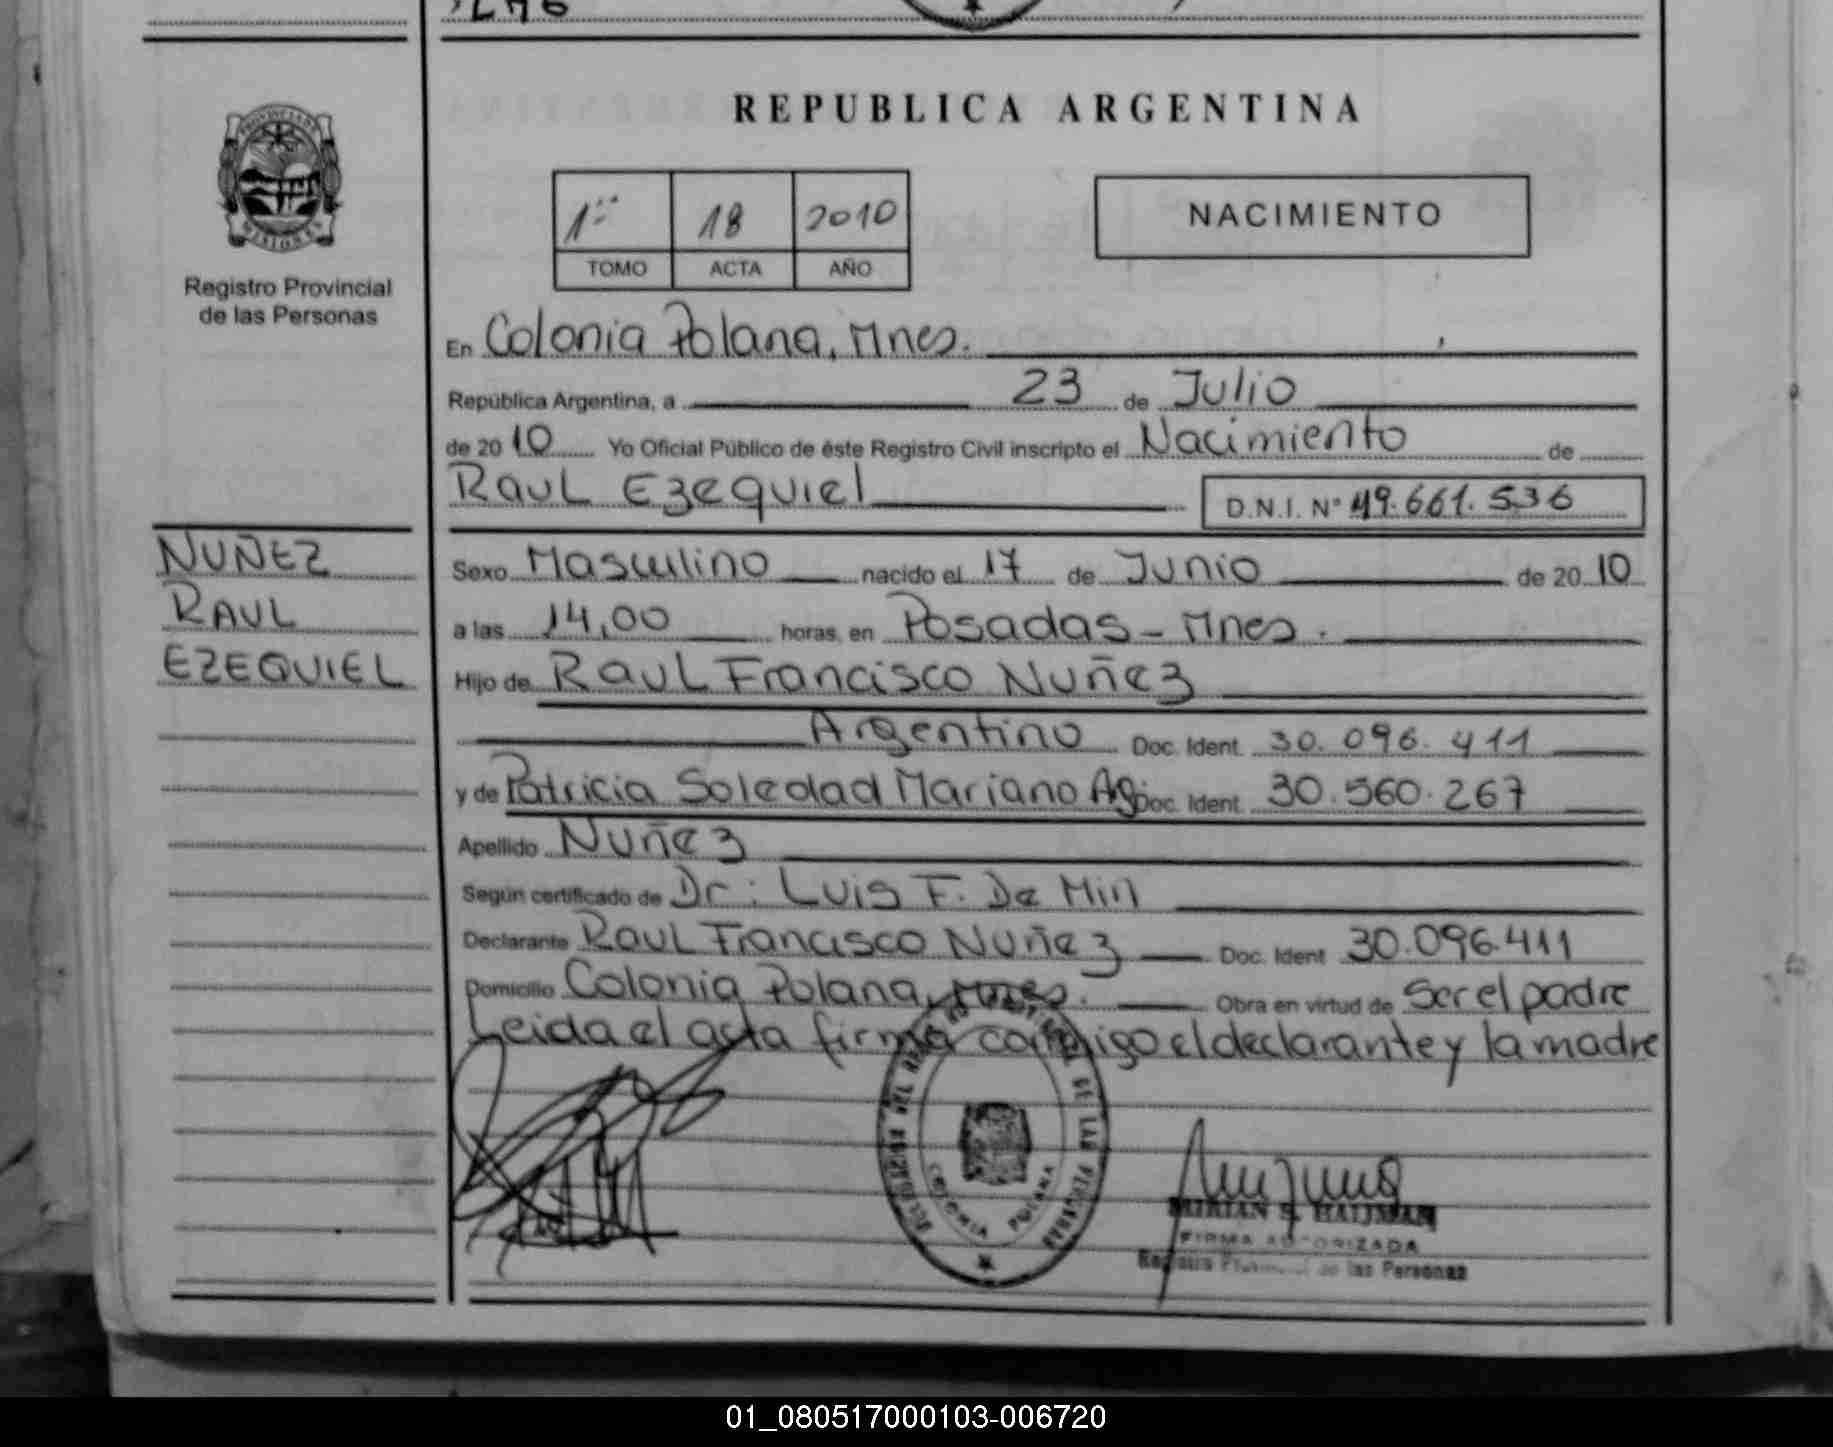 REPUBLICA ARGENTINA
PROVINCIA DE
MISIONES
Registro Provincial
de las Personas
1º 18 2010
TOMO ACTA AÑO
NACIMIENTO
En Colonia Polana, Mnes.
República Argentina, a 23 de Julio
de 20 10 Yo Oficial Público de éste Registro Civil inscripto el Nacimiento de
Raul Ezequiel D.N.I. Nº 49.661.536
NUÑEZ
RAUL
EZEQUIEL
Sexo Masculino nacido el 17 de Junio de 20 10
a las 14,00 horas, en Posadas - Mnes.
Hijo de Raul Francisco Nuñez
Argentino Doc. Ident. 30.096.411
y de Patricia Soledad Mariano Ag. Doc. Ident. 30.560.267
Apellido Nuñez
Según certificado de Dr: Luis F. De Min
Declarante Raul Francisco Nuñez Doc. Ident 30.096.411
Domicilio Colonia Polana, Mnes. Obra en virtud de Ser el padre
Leida el acta firma conmigo el declarante y la madre
DE LAS PERSONAS
COLONIA POLANA
MIRIAN S.
FIRMA AUTORIZADA
Registro Provincial de las Personas
01_080517000103-006720